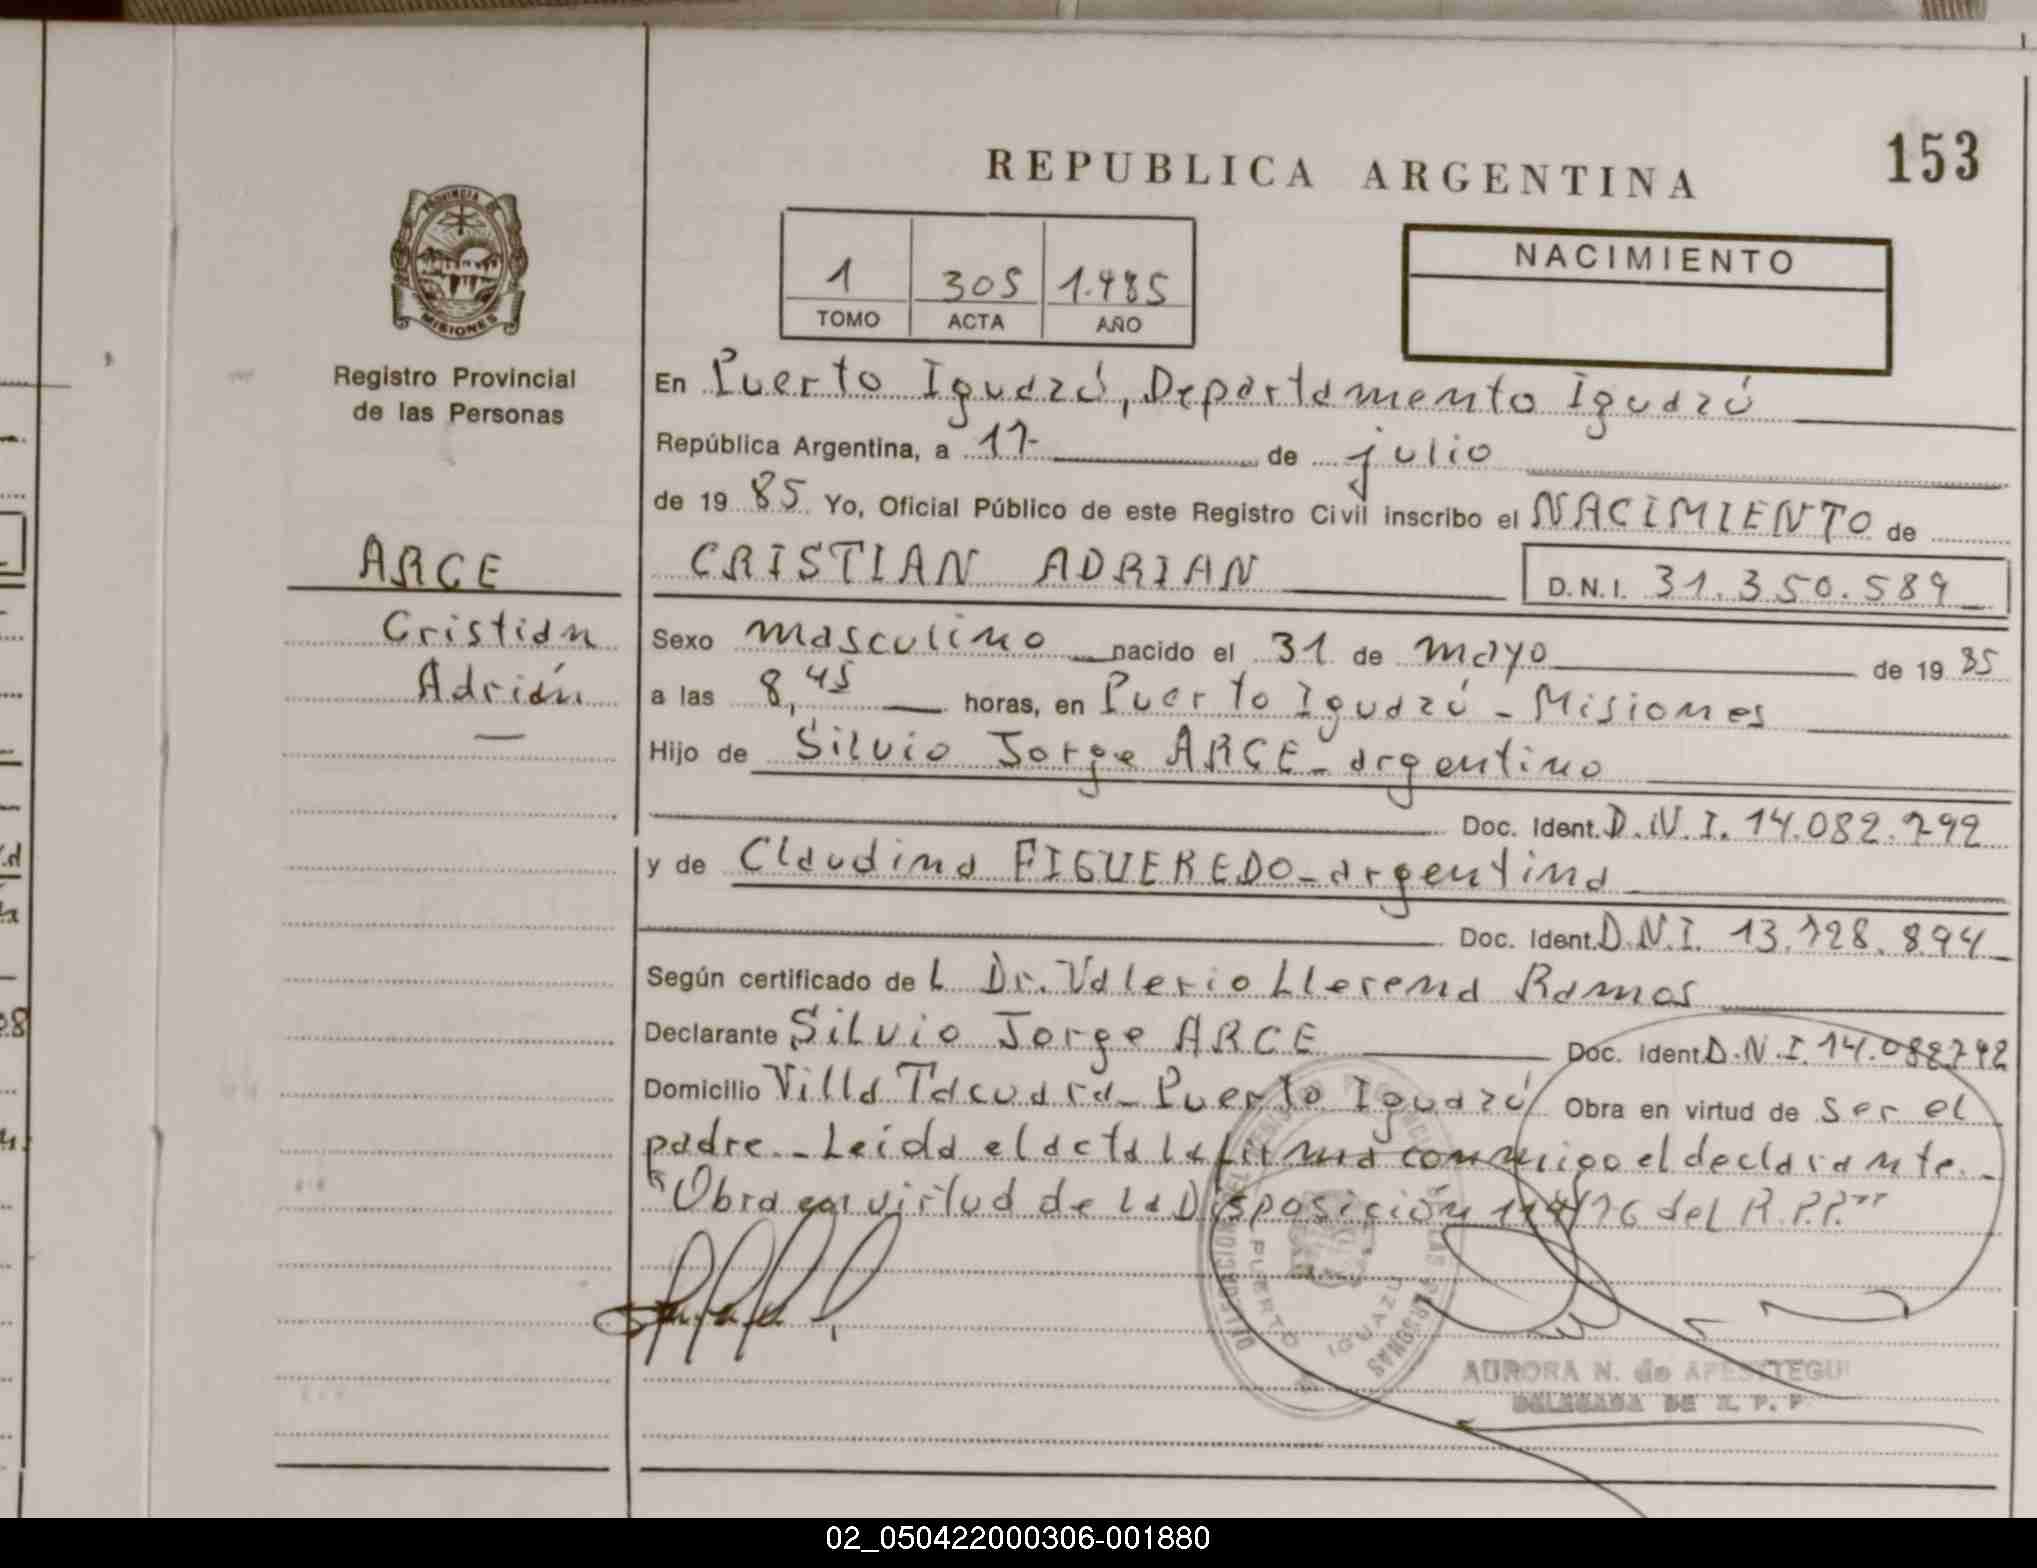 153
REPUBLICA ARGENTINA
PROVINCIA DE
MISIONES
NACIMIENTO
1 305 1.985
TOMO ACTA AÑO
Registro Provincial
de las Personas
ARCE
Cristian
Adrián
En Puerto Iguazú, Departamento Iguazú
República Argentina, a 17 de julio
de 19 85 Yo, Oficial Público de este Registro Civil inscribo el NACIMIENTO de
CRISTIAN ADRIAN D.N.I. 31.350.589
Sexo masculino nacido el 31 de mayo de 19 85
a las 8,45 horas, en Puerto Iguazú - Misiones
Hijo de Silvio Jorge ARCE - argentino
Doc. Ident. D.N.I. 14.082.792
y de Claudina FIGUEREDO - argentina
Doc. Ident. D.N.I. 13.728.894
Según certificado de L Dr. Valerio Llerena Ramos
Declarante Silvio Jorge ARCE Doc. Ident. D.N.I. 14.082792
Domicilio Villa Tacuara - Puerto Iguazú Obra en virtud de ser el
padre.- Leída el acta la firma conmigo el declarante.-
"Obra en virtud de la Disposición /76 del R.P.P."
PUERTO IGUAZU
AURORA N. de
DELEGADA DE R. P. P
02_050422000306-001880